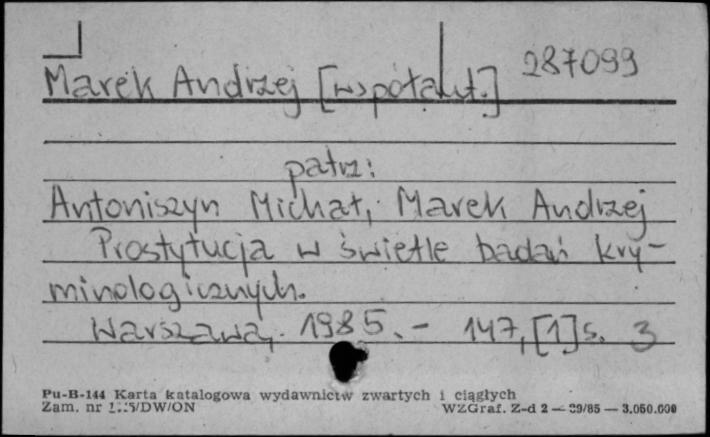 Marek Andrzej [współaut.] 287099
patrz:
Antoniszyn Michał, Marek Andrzej
Prostytucja w świetle badań kry-
minologicznych.
Warszawa, 1985. - 147, [1] s. 3
Pu-B-144 Karta katalogowa wydawnictw zwartych i ciągłych
Zam. nr WZGraf. Z-d 2 — 29/85 — 3.050.000